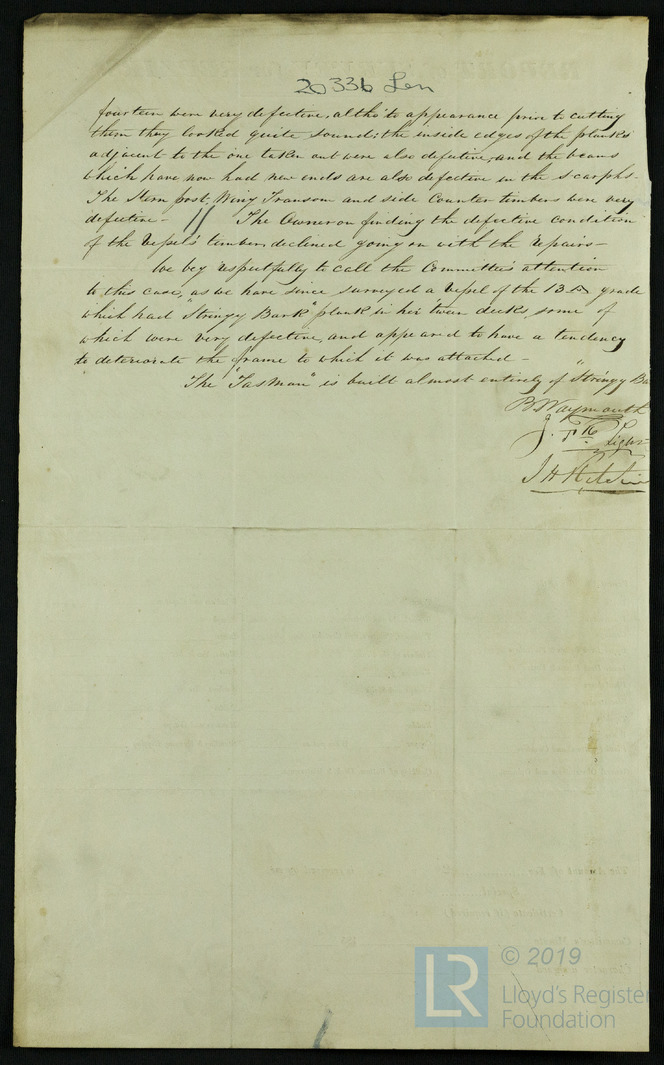 20336 Len
fourteen were very defective, altho' to appearance prior to cutting
them they looked quite sound; the inside edges of the planks
adjacent to the one taken out were also defective, and the beams
which have now had new ends are also defective in the scarphs.
The Stern post, Wing Transom and side Counter timbers were very
defective - // The Owner on finding the defective condition
of the Vessel's timbers, declined going on with the repairs -
We beg respectfully to call the Committee's attention
to this case, as we have since surveyed a Vessel of the 13 grade
which had "Stringy Bark" plank in her 'tween decks, some of
which were very defective, and appeared to have a tendency
to deteriorate the frame to which it was attached -
The "Tasman" is built almost entirely of "Stringy Ba
B Waymouth
J. Light
J H Ritchie
© 2019
LR
Lloyd's Register
Foundation